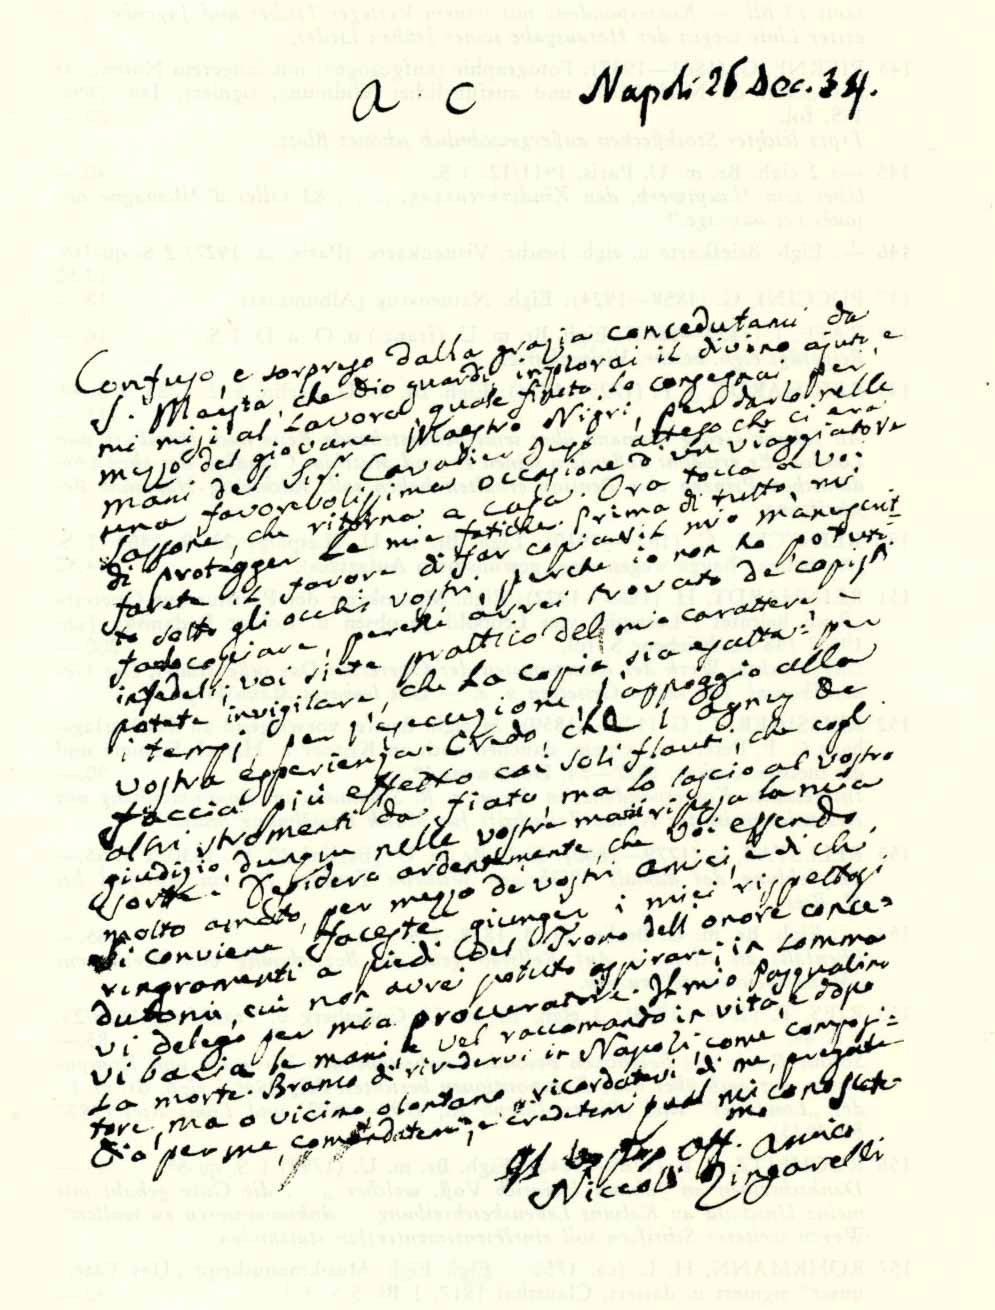 A C Napoli 26 Dec. 34.
Confuso, e sorpreso dalla grazia concedutami da
S. Maestà, che Dio guardi, implorai il divino ajuto, e
me misi al lavoro, quale finito lo consegnai per
mezzo del giovane Maestro Nigri per darlo nelle
mani del Sigr Cavalier atteso che ci era
una favorevolissima occasione di un viaggiatore
Sassone, che ritorna a casa. Ora tocca a voi
di proteggere le mie fatiche. Prima di tutto, mi
farete il favore di far copiare il mio manuscrit=
to sotto gli occhi vostri, perchè io non ho potuto
farlo copiare, perchè avrei trovato de' copisti
infedeli; voi siete prattico del mio carattere e
potete invigilare, che la copia sia esatta: per
i tempi, per l'eccuzione, mi appoggio alla
vostra esperienza. Credo che l'agnus Dei
faccia più effetto coi soli flauti, che cogl'
altri stromenti da fiato ma lo lascio al vostro
giudizio: dunque nelle vostre mani riposa la mia
sorte. Desidero ardentemente che voi essendo
molto amato, per mezzo de' vostri amici, e di chi
si conviene, faceste giunger i miei rispettosi
ringramenti a piedi del Trono dell'onore conce=
dutomi, cui non avrei potuto aspirare; in somma
vi delego per mio procuratore. Il mio Pasqualino
vi bacia le mani e vel raccomando in vita, e dopo
la morte. Bramo di rivedervi in Napoli, come composi=
tore, ma o vicino, o lontano, ricordatevi di me, pregate
Dio per me, comandatemi, e credetemi qual mi conoscete
Il vostro aff. mo amico
Niccolò Zingarelli